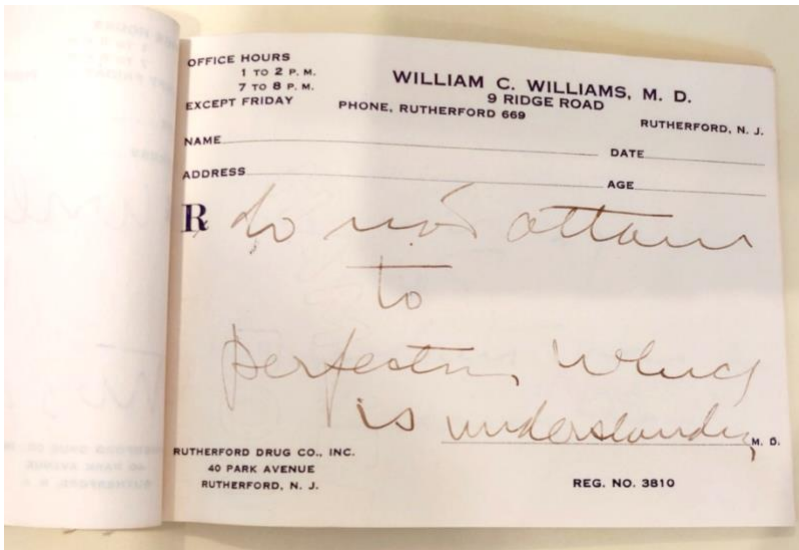 OFFICE HOURS
1 TO 2 P. M.
7 TO 8 P. M.
EXCEPT FRIDAY
WILLIAM C. WILLIAMS, M. D.
9 RIDGE ROAD
PHONE, RUTHERFORD 669
RUTHERFORD, N. J.
NAME
DATE
ADDRESS
AGE
R do not attain
to
perfection, which
is understanding M. D.
RUTHERFORD DRUG CO., INC.
40 PARK AVENUE
RUTHERFORD, N. J.
REG. NO. 3810